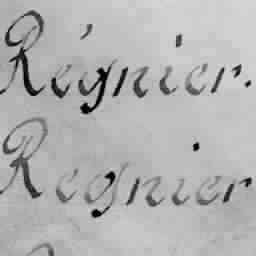 Régnier.
Regnier